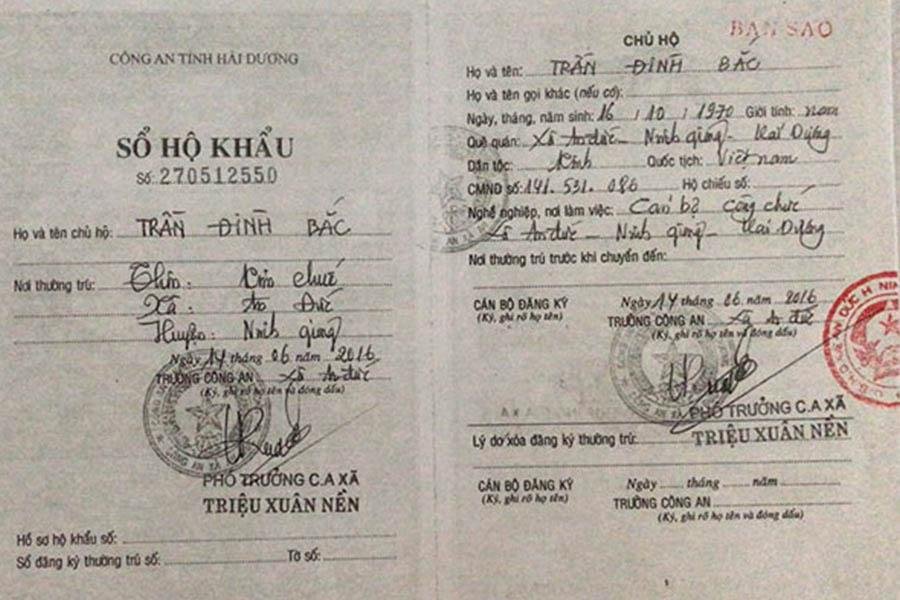 CÔNG AN TỈNH HẢI DƯƠNG
SỔ HỘ KHẨU
Số: 270512550
Họ và tên chủ hộ: TRẦN ĐÌNH BẮC
Nơi thường trú: Thôn: chuế
Xã: An Đức
Huyện: Ninh giang
Ngày 14 tháng 06 năm 2016
TRƯỞNG CÔNG AN Xã An đức
(Ký, ghi rõ họ tên và đóng dấu)
PHÓ TRƯỞNG C.A XÃ
TRIỆU XUÂN NỀN
Hồ sơ hộ khẩu số:
Sổ đăng ký thường trú số: Tờ số:
BẢN SAO
CHỦ HỘ
Họ và tên: TRẦN ĐÌNH BẮC
Họ và tên gọi khác (nếu có):
Ngày, tháng, năm sinh: 16 / 10 / 1970 Giới tính: nam
Quê quán: Xã An đức - Ninh giang - Hải Dương
Dân tộc: Kinh Quốc tịch: Việt nam
CMND số: 141. 531. 086 Hộ chiếu số:
Nghề nghiệp, nơi làm việc: Cán bộ công chức
Xã An đức - Ninh giang - Hải Dương
Nơi thường trú trước khi chuyển đến:
Ngày 14 tháng 06 năm 2016
CÁN BỘ ĐĂNG KÝ TRƯỞNG CÔNG AN Xã An đức
(Ký, ghi rõ họ tên) (Ký, ghi rõ họ tên và đóng dấu)
PHÓ TRƯỞNG C.A XÃ
TRIỆU XUÂN NỀN
Lý do xóa đăng ký thường trú:
Ngày tháng năm
CÁN BỘ ĐĂNG KÝ TRƯỞNG CÔNG AN
(Ký, ghi rõ họ tên) (Ký, ghi rõ họ tên và đóng dấu)
1